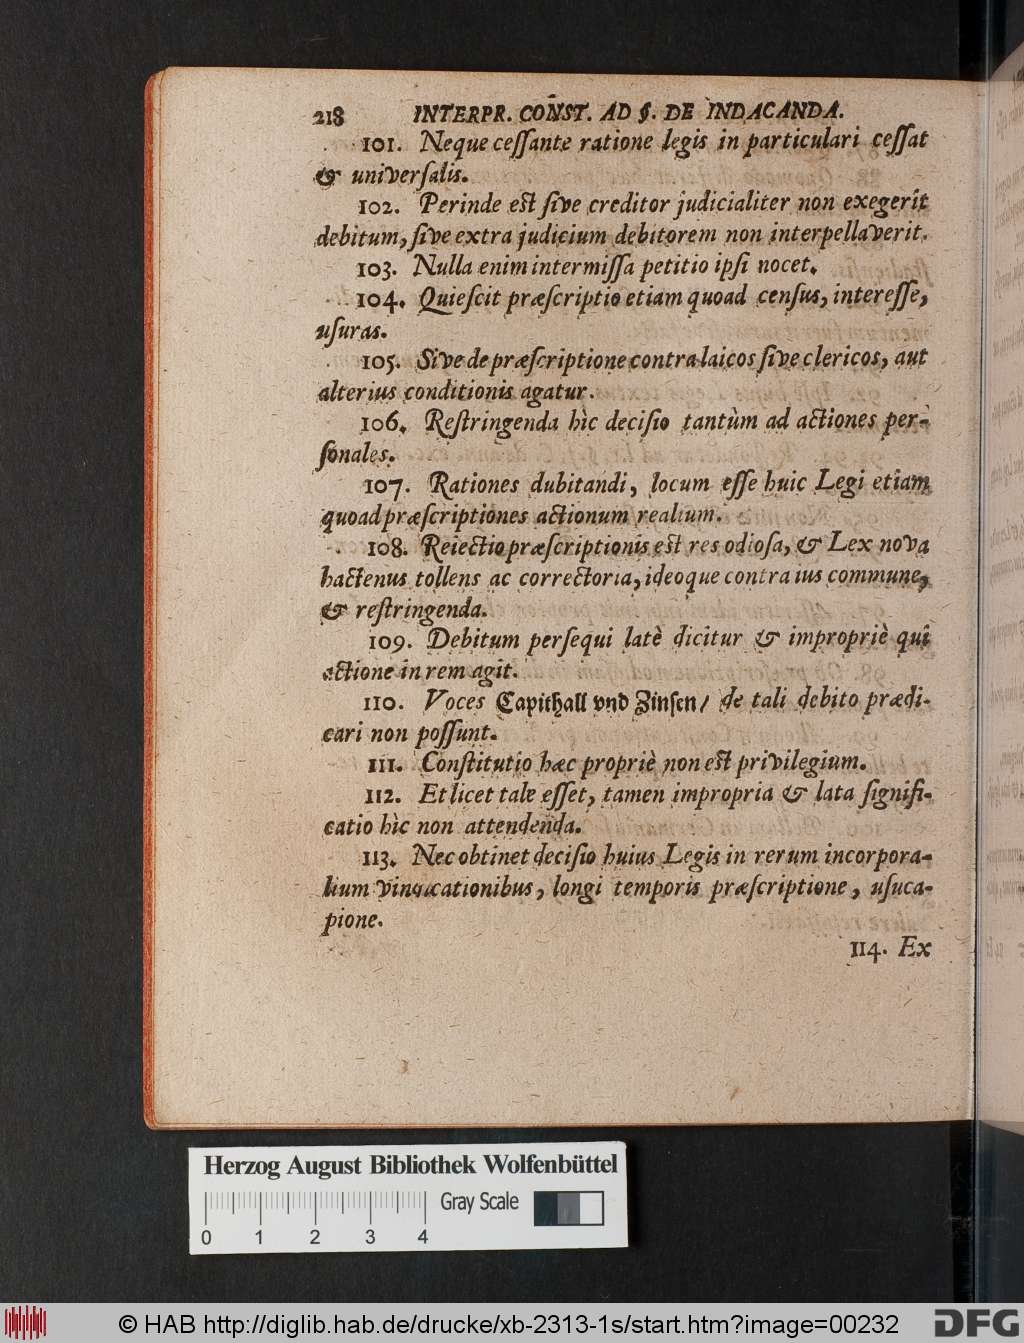 218 INTERPR. CON̄ST. AD §. DE INDACANDA.
101. Neque ceſſante ratione legis in particulari ceſſat
& univerſalis.
102. Perinde eſt ſive creditor judicialiter non exegerit
debitum, ſive extra judicium debitorem non interpellaverit.
103. Nulla enim intermiſſa petitio ipſi nocet.
104. Quieſcit præſcriptio etiam quoad cenſus, intereſſe,
uſuras.
105. Sive de præſcriptione contra laicos ſive clericos, aut
alterius conditionis agatur.
106. Reſtringenda hìc deciſio tantùm ad actiones per-
ſonales.
107. Rationes dubitandi, locum eſſe huic Legi etiam
quoad præſcriptiones actionum realium.
108. Reiectio præſcriptionis eſt res odioſa, & Lex nova
hactenus tollens ac correctoria, ideoque contra ius commune,
& reſtringenda.
109. Debitum perſequi latè dicitur & impropriè qui
actione in rem agit.
110. Voces Capithall vnd Zinſen/ de tali debito prædi-
cari non poſſunt.
111. Conſtitutio hæc propriè non eſt privilegium.
112. Et licet tale eſſet, tamen impropria & lata ſignifi-
catio hìc non attendenda.
113. Nec obtinet deciſio huius Legis in rerum incorpora-
lium vindicationibus, longi temporis præſcriptione, uſuca-
pione.
114. Ex
Herzog August Bibliothek Wolfenbüttel
Gray Scale
0 1 2 3 4
© HAB http://diglib.hab.de/drucke/xb-2313-1s/start.htm?image=00232
DFG